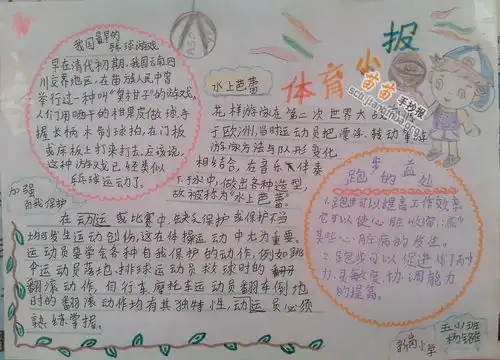 体育小报
我国最早的
乒球游戏
早在清代初期,我国云南四
川交界地区,在苗族人民中曾
举行过一种叫"黄柑子"的游戏,
人们用晒干的柑果皮做球,手
握长柄木制球拍,在门板
或床板上打来打去,应该说,
这种游戏已轻类似
乒球运动了。
水上芭蕾
花样游泳在第二次世界大战
于欧州,当时运动员把漂浮、转动
游泳方法与队形变化
相结合,在音乐伴奏
下于水中,做出各种造型,
故被称为"水上芭蕾"。
加强
自我保护
在运动或比赛中,缺乏保护或保护不当
均易发生运动创伤,这在体操运动中尤为重要。
运动员要学会各种自我保护的动作,例如跳
伞运动员落地、排球运动员救球时的
翻滚动作,自行车、摩托车运动员翻车倒地
时的翻滚动作均有其独特性,动运员必须
熟练掌握。
跑步的益处
1.跑步可以提高工作效率,
它可以使心脏收缩,
某些心脏病的发生。
2.跑步可以促进
力、灵敏度、协调能力
的提高。
五(1)班
新岗小学
苗苗手抄报